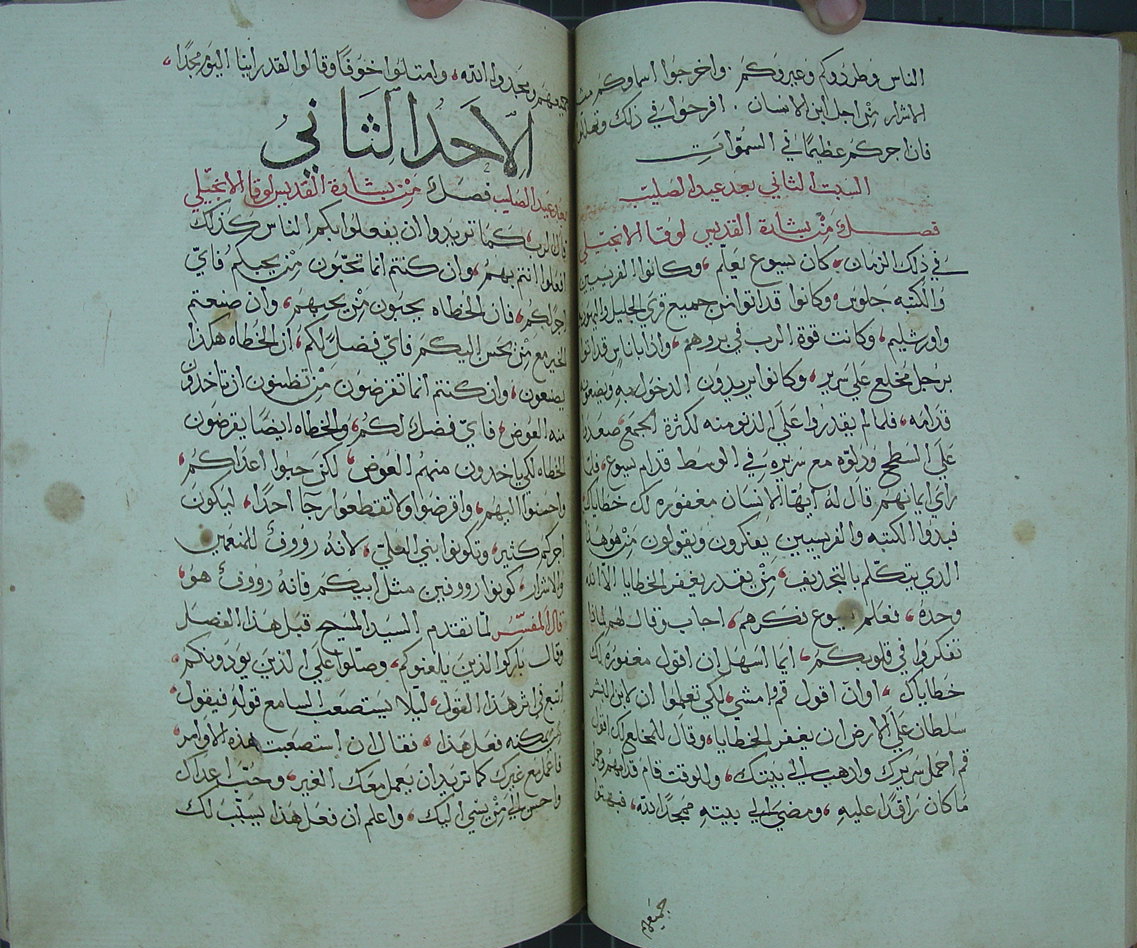 الناس وطردوكم وعيروكم. واخرجوا اسماوكم مثل
اشرار من اجل ابن الانسان. افرحوا في ذلك وتهللوا
فان اجركم عظيمًا في السموات
السبت الثاني بعد عيد الصليب
فصل من بشارة القديس لوقا الانجيلي
في ذلك الزمان، كان يسوع يعلم، وكانوا الفريسيين
والكتبه جلوس، وكانوا قد اتوا من جميع قري الجليل واليهوديه
واورشليم، وكانت قوة الرب في بروهم، واذا باناس قد اتوا
برجل مخلع علي سرير، وكانوا يريدون الدخول به ويضعوه
قدامه، فلما لم يقدروا علي الدنو منه لكثرة الجمع صعدوا
علي السطح ودلوه مع سريره في الوسط قدام يسوع، فلما
راي ايمانهم قال له ايها الانسان مغفوره لك خطاياك
فبدوا الكتبه والفريسيين يفكرون ويقولون من هو هذا
الدي يتكلم بالتجديف، من يقدر يغفر الخطايا الا الله
وحده، فعلم يسوع فكرهم، اجاب وقال لهم لماذا
تفكروا في قلوبكم، ايما اسهل ان اقول مغفوره لك
خطاياك، اوان اقول قم وامشي، لكي تعلموا ان لابن البشر
سلطان علي الارض ان يغفر الخطايا، وقال للمخلع لك اقول
قم احمل سريرك وادهب الي بيتك، وللوقت قام قدامهم وحمل
ما كان راقدًا عليه، ومضي الي بيته ممجدًا الله، فبهتوا
جميعهم
جميعهم ويمجدوا الله، وامتلوا خوفًا وقالوا لقد راينا اليوم مجدًا،
الاحد الثاني
بعد عيد الصليب فصل من بشارة القديس لوقا الانجيلي
قال الرب، كما تريدوا ان يفعلوا بكم الناس كذلك
افعلوا انتم بهم، وان كنتم انما تحبون من يحبكم فاي
اجرا لكم، فان الخطاه يحبون من يحبهم، وان صنعتم
الخير مع من يحسن اليكم فاي فضل لكم، ان الخطاه هكذا
يصنعون، وان كنتم انما تقرضون من تظنون ان تاخدون
منه العوض، فاي فضل لكم، والخطاه ايضًا يقرضون
الخطاه لكي ياخدون منهم العوض، لكن حبوا اعداكم،
واحسنوا اليهم، واقرضوا ولا تقطعوا رجا احدًا، ليكون
اجركم كثير، وتكونوا بني العلي، لانه رووف للمنعمين
والاشرار، كونوا رووفين مثل ابيكم فانه رووف هو،
قال المفسر لما تقدم السيد المسيح قبل هذا الفصل
وقال باركوا الذين يلعنوكم، وصلوا علي الذين يودونكم،
اتبع في اثر هذا القول، ليلا يستصعب السامع قوله فيقول
يمكنه فعل هذا، فقال ان استصعبت هذه الاوامر،
فاعمل مع غيرك كما تريد ان يعمل معك الغير، وحب اعداك
واحسن الي من يسي اليك، واعلم ان فعل هذا يسبب لك